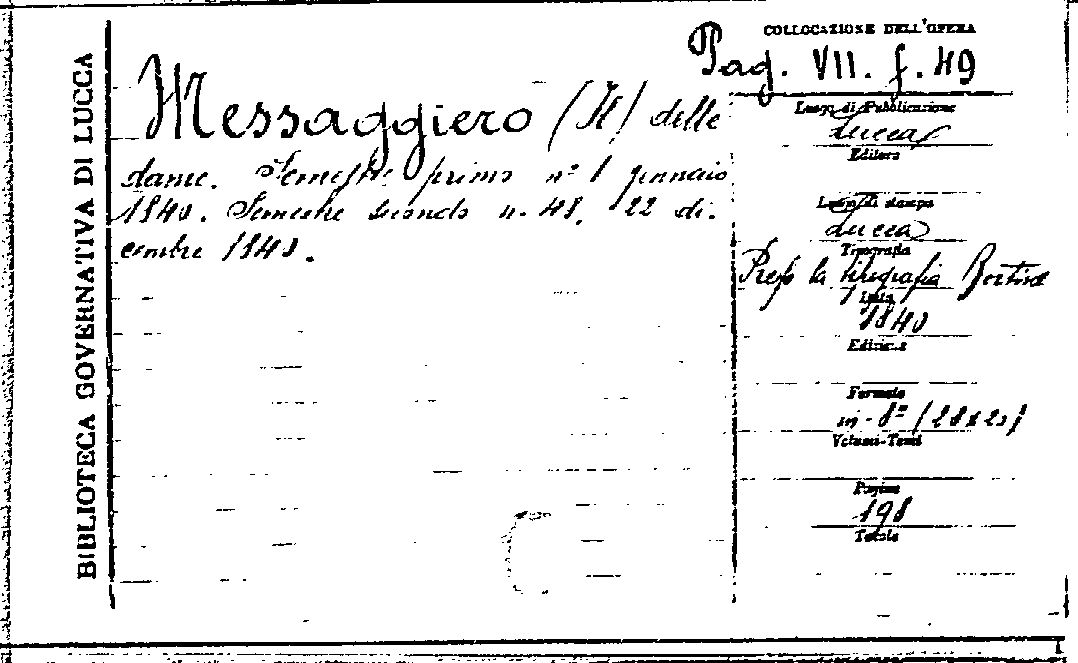 BIBLIOTECA GOVERNATIVA DI LUCCA
Messaggiero (Il) delle
dame. Semestre primo nº 1 gennaio
1840. Semestre secondo n. 48, 22 di-
cembre 1840.
COLLOCAZIONE DELL'OPERA
Pag. VII. f. 49
Luogo di Pubblicazione
Lucca
Editore
Luogo di stampa
Lucca
Tipografia
Press la tipografia
Data
1840
Edizione
Formato
in-8º (28x20)
Volumi-Tomi
Pagine
198
Totale